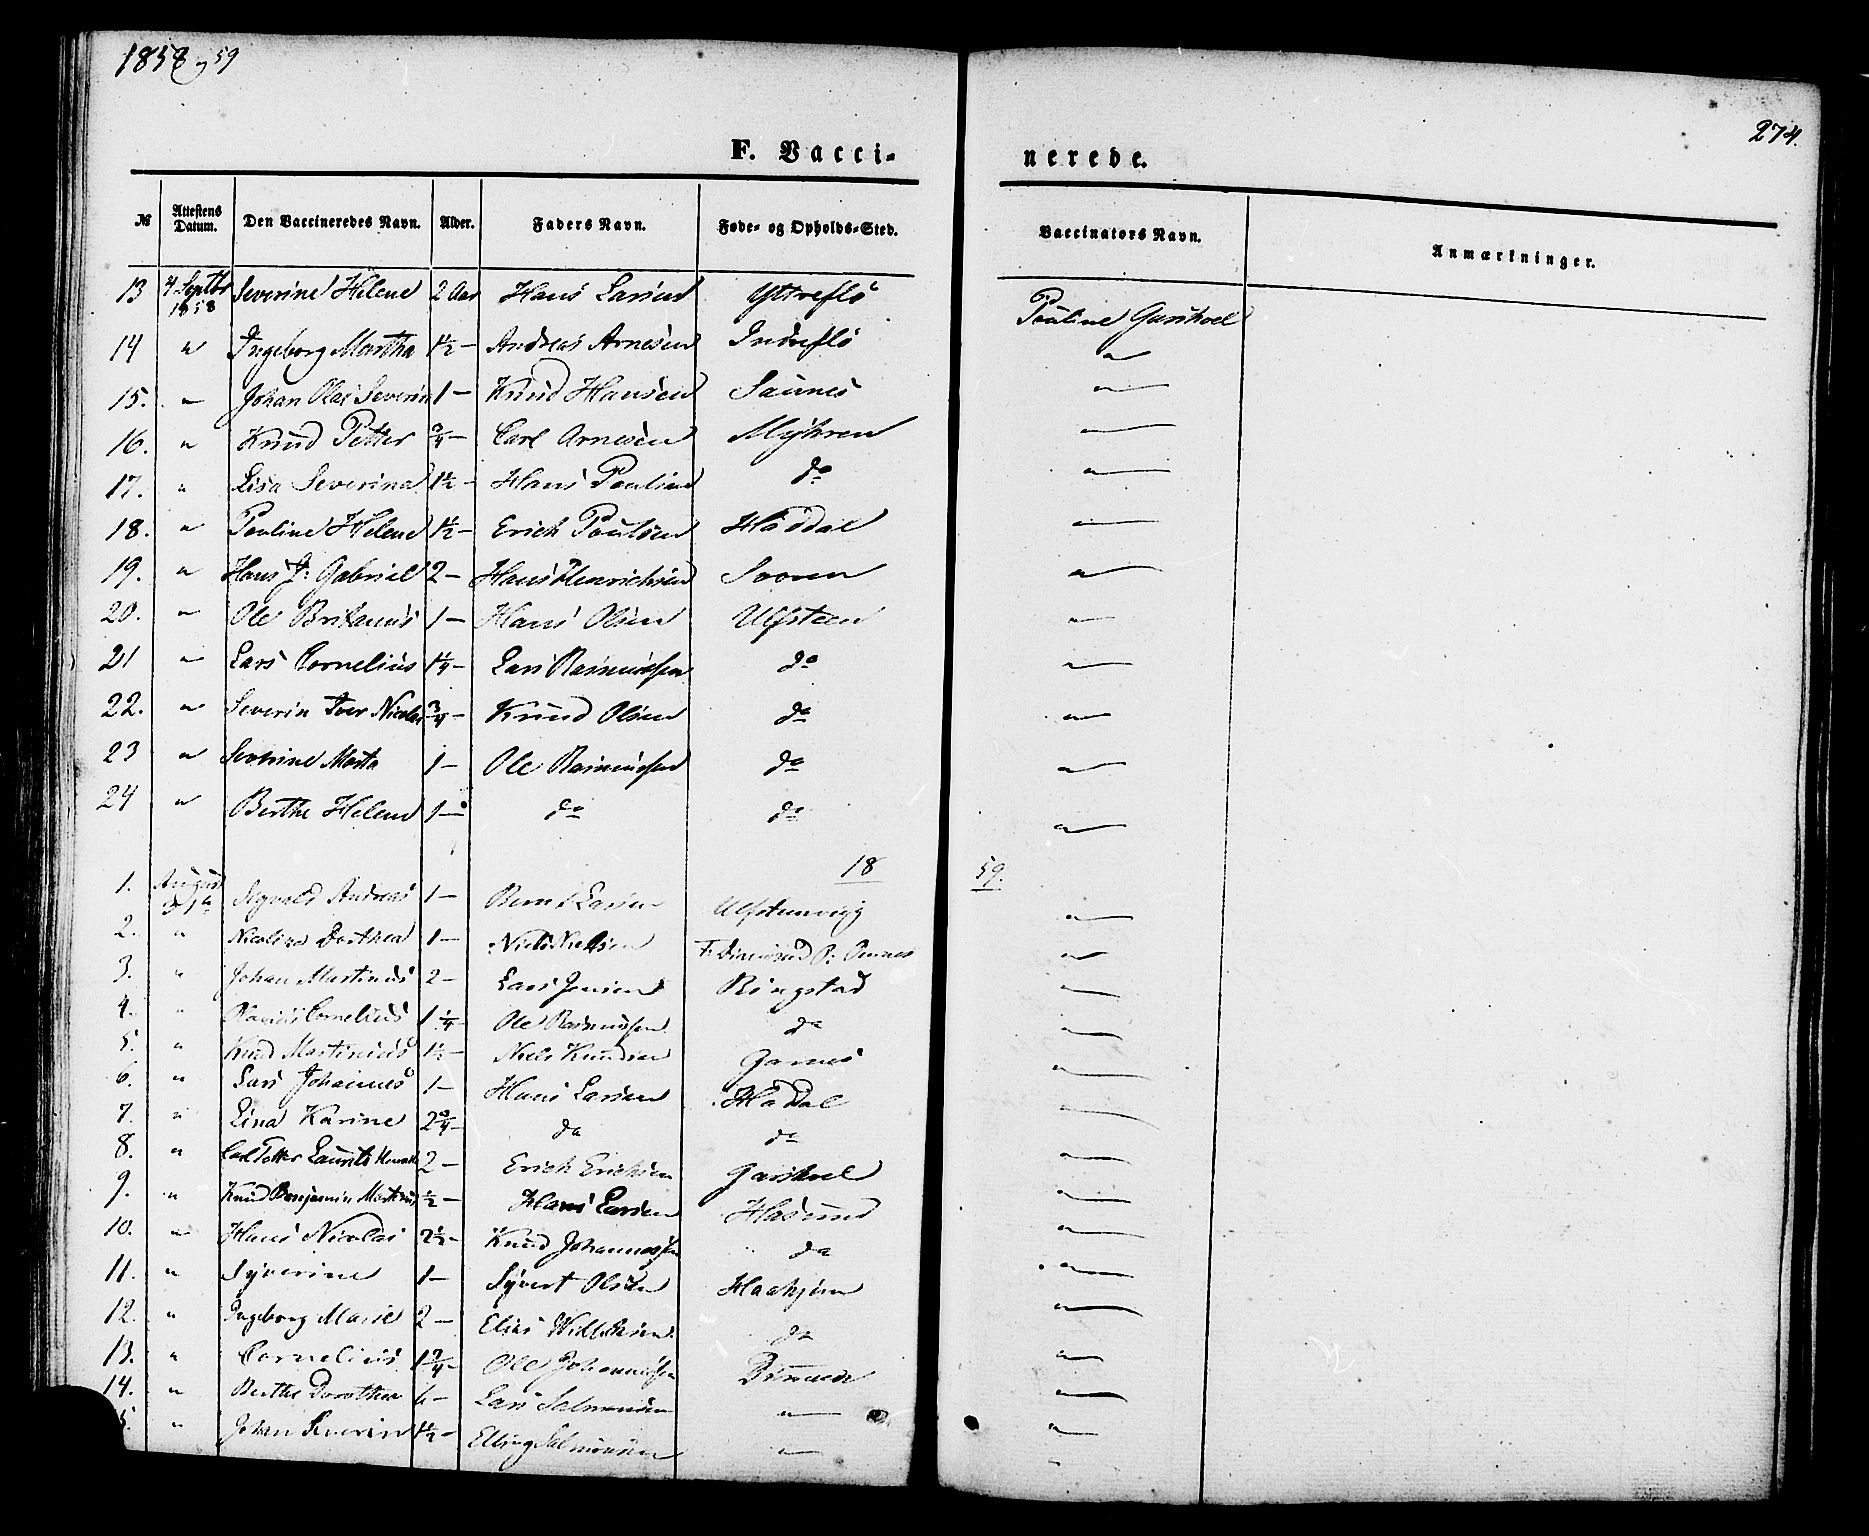 1858 og 59
274.
F. Vacci-
nerede.
№ Attestens Datum. Den Vaccineredes Navn. Alder. Faders Navn. Føde- og Opholds-Sted. Vaccinators Navn. Anmærkninger.
13 4 Septbr 1858 Severine Helene 2 Aar Hans Larsen Yttreflø Pauline Garshoel
14 " Ingeborg Martha 1½ - Andreas Arnesen Indreflø "
15. " Johan Olai Severin 1 - Knud Hansen Saunes "
16. " Knud Petter ¾ - Carl Arnesen Myhren "
17. " Lisa Severina 1½ - Hans Poulsen do "
18. " Pauline Helene 1½ - Erich Poulsen Haddal "
19. " Hans J: Gabriel 2 - Hans Henrichsen "
20. " Ole Britanus 1 - Hans Olsen Ulfsteen "
21 " Lars Cornelius 1¼ - Lars Rasmussen do "
22. " Severin Iver Nicolai ¾ - Knud Olsen do "
23 " Marta 1 - Ole Rasmussen do "
24 " Berthe Helene 1 - do do "
18 59.
1. August 31te Sigvald Andreas 1 - Bernt Larsen Ulfstenvig "
2. " Nicoline Dorthea 1 - Niels Nielsen "
3. " Johan Martinus 2 - Lars Jensen Ringstad "
4. " Cornelius 1¼ Ole Rasmussen do "
5. " Knud Martinius 1½ - Niels Knudsen Garnes "
6. " Lars Johannes 1 - Hans Larsen Haddal "
7. " Lina Karine 2¾ - do do "
8. " Carl Petter Laurits 2 - Erich Erichsen Garshoel "
9. " Knud Benjamin Martinus ½ - Hans Larsen Hasund "
10. " Hans Nicolai 2½ - Knud Johannessen do "
11. " Syverine 1 - Syvert Olsen Haahjem "
12. " Ingeborg Marie 2 - Elias Willumsen do "
13. " Cornelius 1¾ - Ole Johannessen "
14. " Berthe Dorothea 6 - Lars Salmonsen " "
5. " Johan Severin 1½ - Elling Salmonsen " "